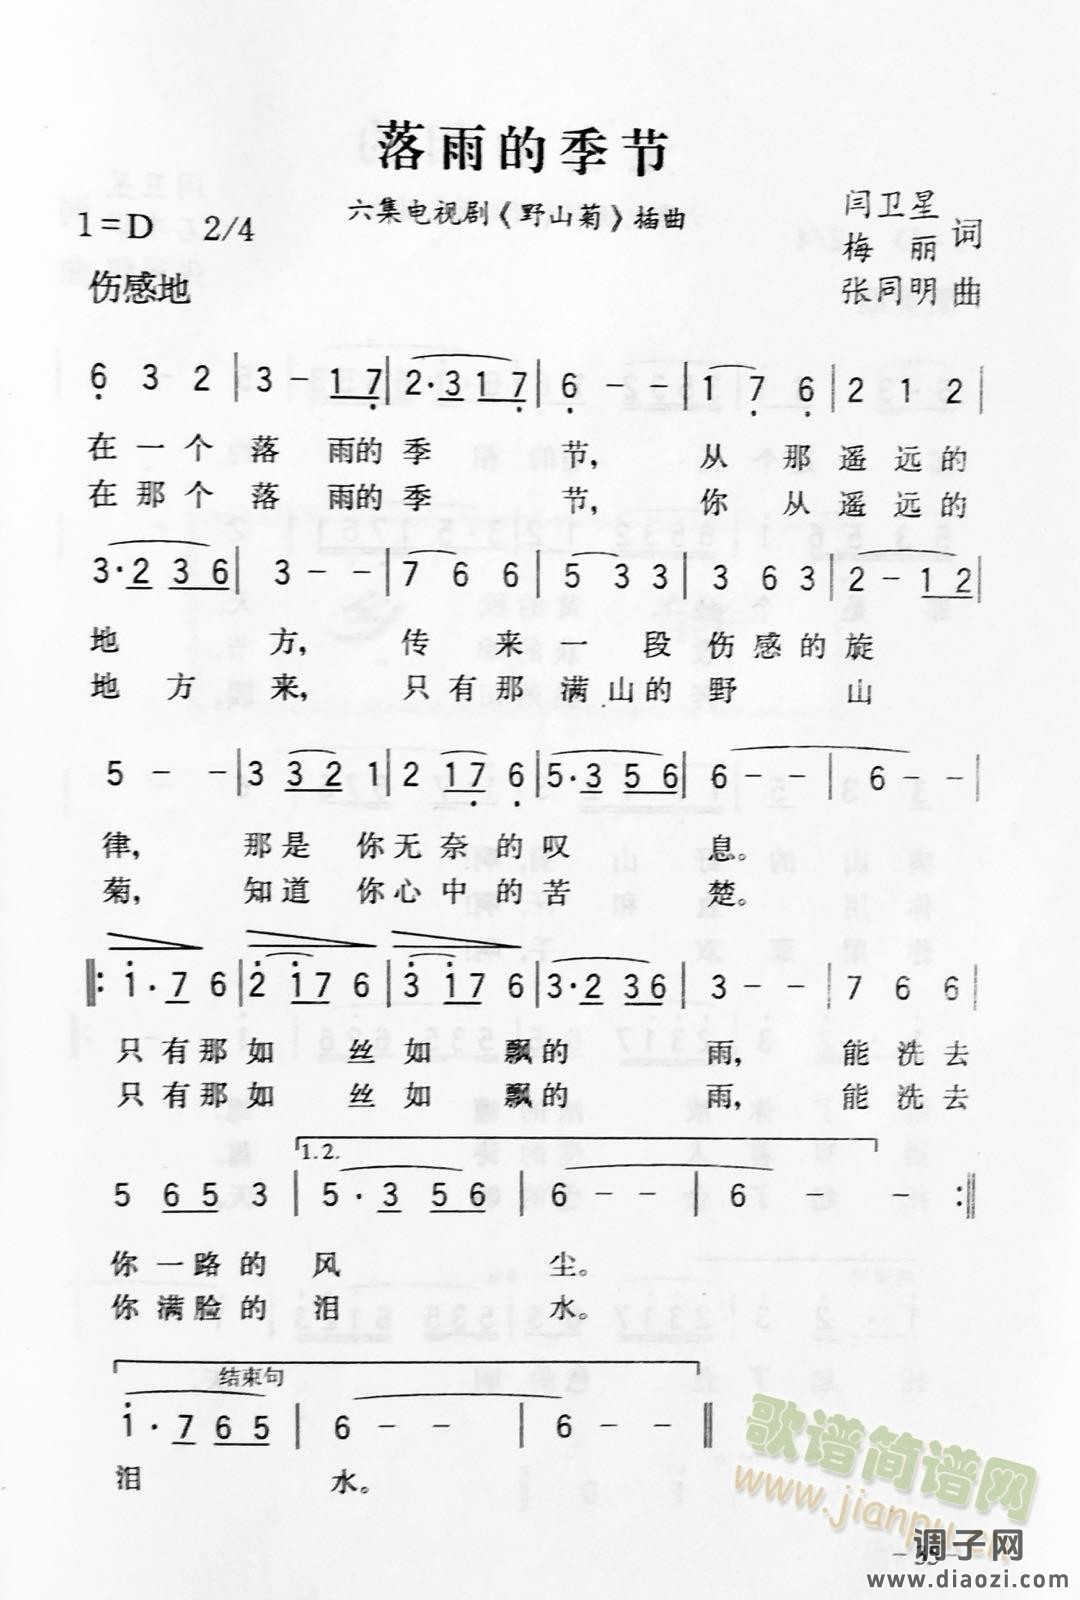 落雨的季节
六集电视剧《野山菊》插曲
1=D 2/4
闫卫星
梅丽 词
张同明 曲
伤感地
6 3 2 | 3 - 1 7 | 2·3 1 7 | 6 - - | 1 7 6 | 2 1 2 |
在一个 落 雨的 季 节, 从 那 遥远的
在那个 落 雨的 季 节, 你 从 遥远的
3·2 3 6 | 3 - - | 7 6 6 | 5 3 3 | 3 6 3 | 2 - 1 2 |
地 方, 传 来 一 段 伤感的旋
地 方 来, 只有那 满山的 野 山
5 - - | 3 3 2 1 | 2 1 7 6 | 5·3 5 6 | 6 - - | 6 - - |
律, 那是 你无奈的叹 息。
菊, 知道 你心中的苦 楚。
‖: 1·7 6 | 2 1 7 6 | 3 1 7 6 | 3·2 3 6 | 3 - - | 7 6 6 |
只有那如 丝如 飘的 雨, 能洗去
只有那如 丝如 飘的 雨, 能洗去
1.2.
5 6 5 3 | 5·3 5 6 | 6 - - | 6 - - :‖
你一路的 风 尘。
你满脸的 泪 水。
结束句
1·7 6 5 | 6 - - | 6 - - ‖
泪 水。
歌谱简谱网
www.jianpu.cn
调子网
www.diaozi.com